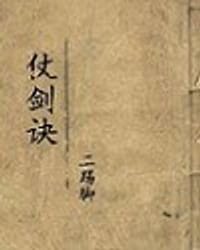 仗剑诀
二踢脚